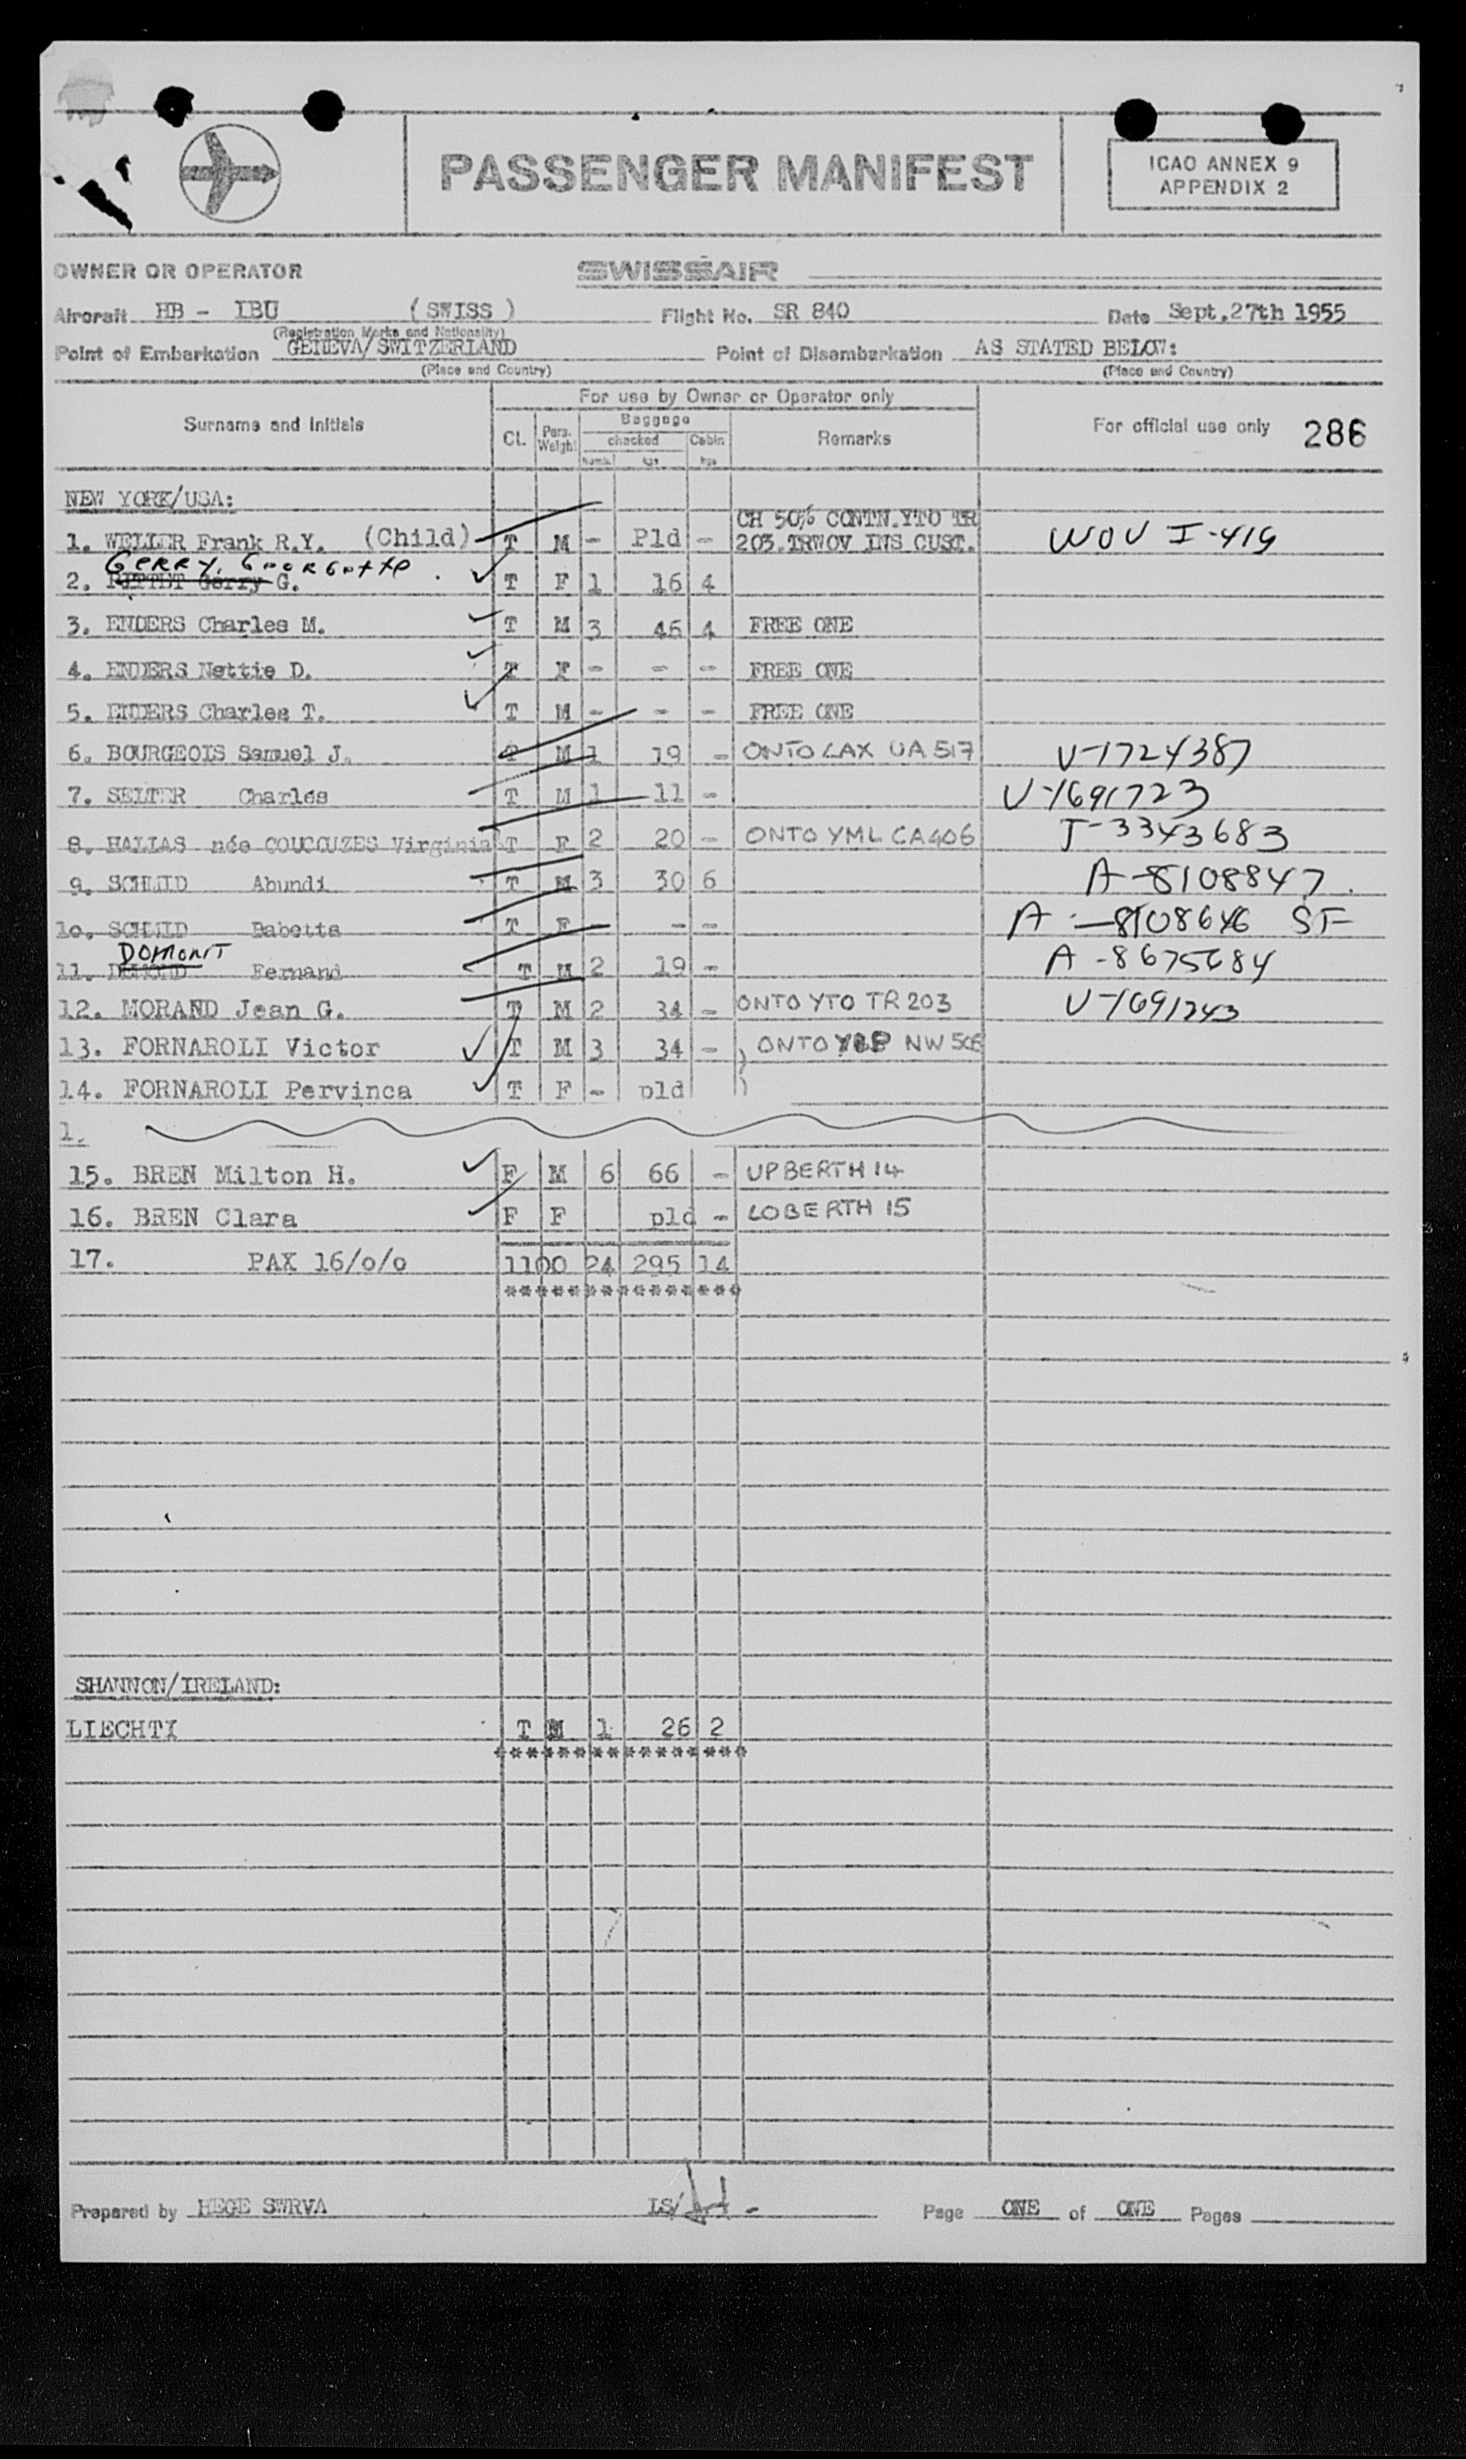 PASSENGER MANIFEST
ICAO ANNEX 9
APPENDIX 2
OWNER OR OPERATOR SWISSAIR
Aircraft HB - IBU (SWISS) Flight No. SR 840 Date Sept.27th 1955
(Registration Marks and Nationality)
Point of Embarkation GENEVA/SWITZERLAND Point of Disembarkation AS STATED BELOW:
(Place and Country) (Place and Country)
For use by Owner or Operator only
Surname and Initials Cl. Pers. Weight Baggage checked numb. kgs Cabin kgs Remarks For official use only 286
NEW YORK/USA:
CH 50% CONTN.YTO TR
1. WELLER Frank R.Y. (Child) T M - Pld - 203.TRWOV INS CUST. WOV I-419
GERRY, Georgette
2. Gerry G. T F 1 16 4
3. ENDERS Charles M. T M 3 46 4 FREE ONE
4. ENDERS Nettie D. T F - - - FREE ONE
5. ENDERS Charles T. T M - - - FREE ONE
6. BOURGEOIS Samuel J. T M 1 19 - ONTO LAX UA 517 V-1724387
7. SELTER Charles T M 1 11 - V-1691723
8. HALIAS née COUCOUZES Virginia T F 2 20 - ONTO YML CA406 T-3343683
9. SCHMID Abundi T M 3 30 6 A-8108847
10. SCHMID Babetta T F - - - A-8108646 SF
DOMONT
11. Fernand T M 2 19 - A-8675684
12. MORAND Jean G. T M 2 34 - ONTO YTO TR 203 V-1691243
13. FORNAROLI Victor T M 3 34 - ) ONTO NW
14. FORNAROLI Pervinca T F - pld )
1.
15. BREN Milton H. F M 6 66 - UPBERTH 14
16. BREN Clara F F pld - LOBERTH 15
17. PAX 16/o/o 1100 24 295 14
***************
SHANNON/IRELAND:
LIECHTI T M 1 26 2
****************
Prepared by HEGE SWRVA LS/ Page ONE of ONE Pages